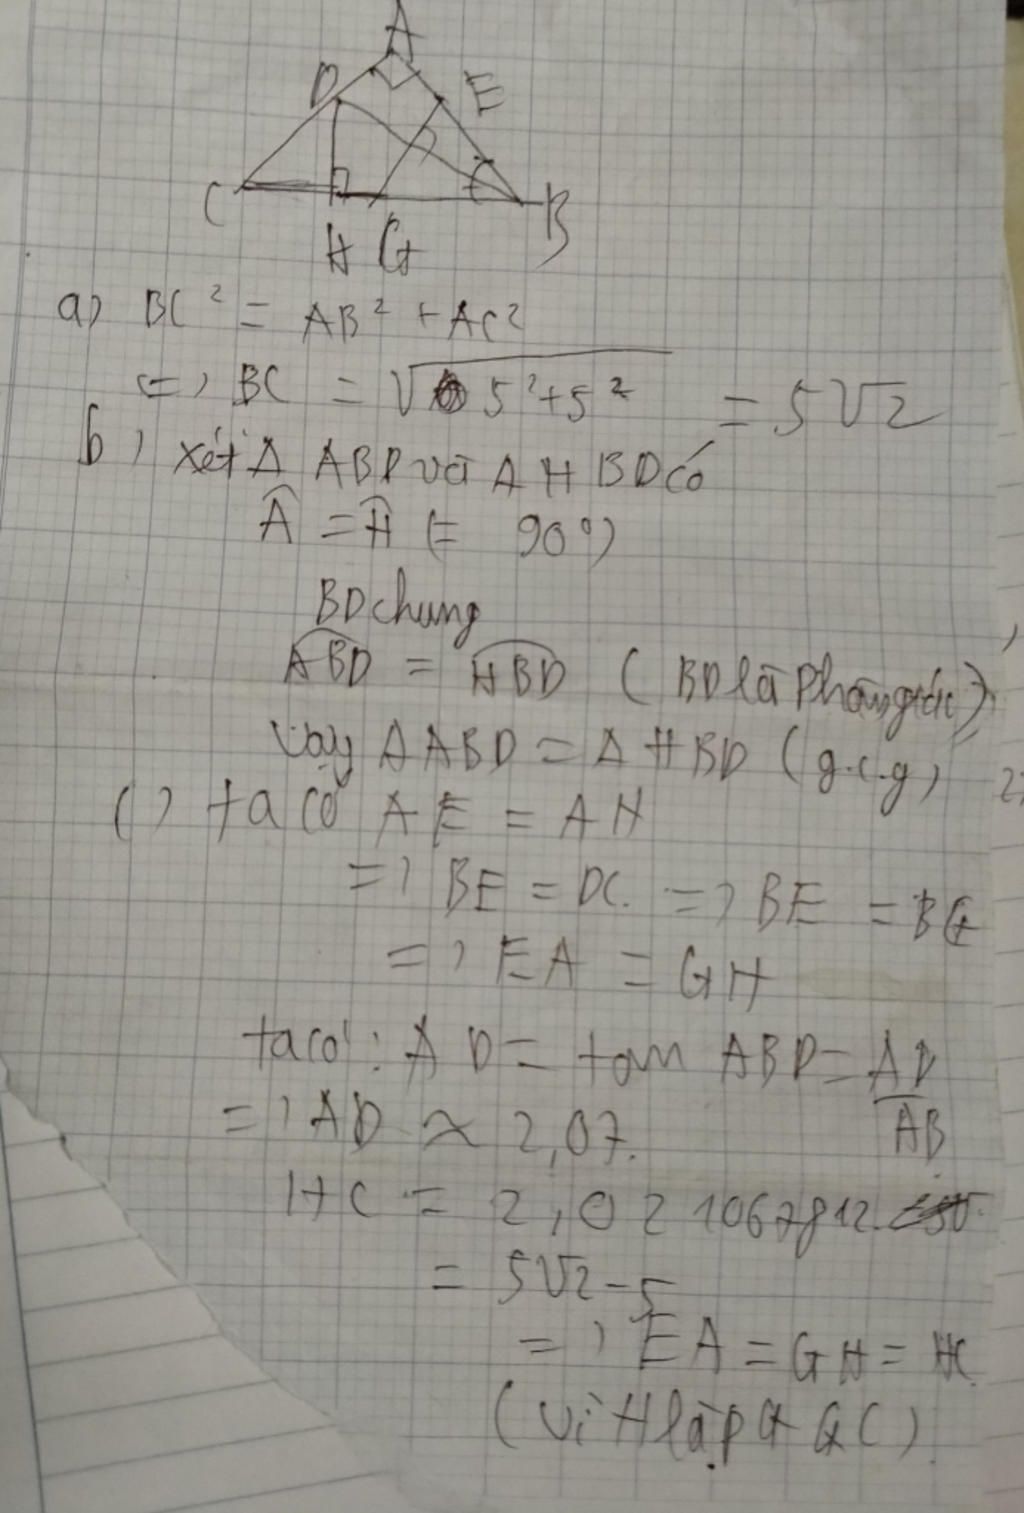 A
D
E
C
B
H G
a) BC² = AB² + AC²
<=> BC = √5²+5² = 5√2
b) xét Δ ABD và Δ HBD có
Â = Ĥ (= 90°)
BD chung
ABD = HBD (BD là phân giác)
Vậy Δ ABD = Δ HBD (g.c.g)
c) ta có AE = AH
=> BE = DC. => BE = BG
=> EA = GH
ta có: AD = tan ABD = AD/AB
=> AD ≈ 2,07.
HC = 2,021067812
= 5√2 - 5
=> EA = GH = HC
(vì H là GC)